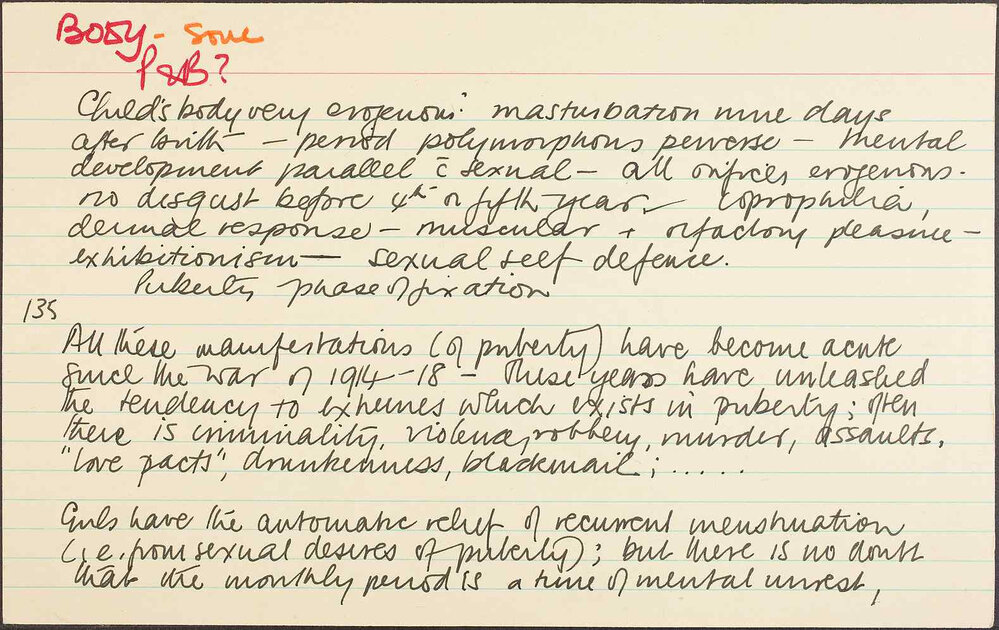 BODY - Soul
P&B?
Child's body very erogenous: masturbation nine days
after birth — period polymorphous perverse — mental
development parallel c̄ sexual — all orifices erogenous.
no disgust before 4th or fifth year — coprophilia,
dermal response — muscular + olfactory pleasure —
exhibitionism — sexual self defence.
Puberty phase of fixation
135
All these manifestations (of puberty) have become acute
since the war of 1914-18 — these years have unleashed
the tendency to extremes which exists in puberty; often
there is criminality, violence, robbery, murder, assaults,
"love pacts", drunkenness, blackmail; .....
Girls have the automatic relief of recurrent menstruation
(i.e. from sexual desires of puberty); but there is no doubt
that the monthly period is a time of mental unrest,